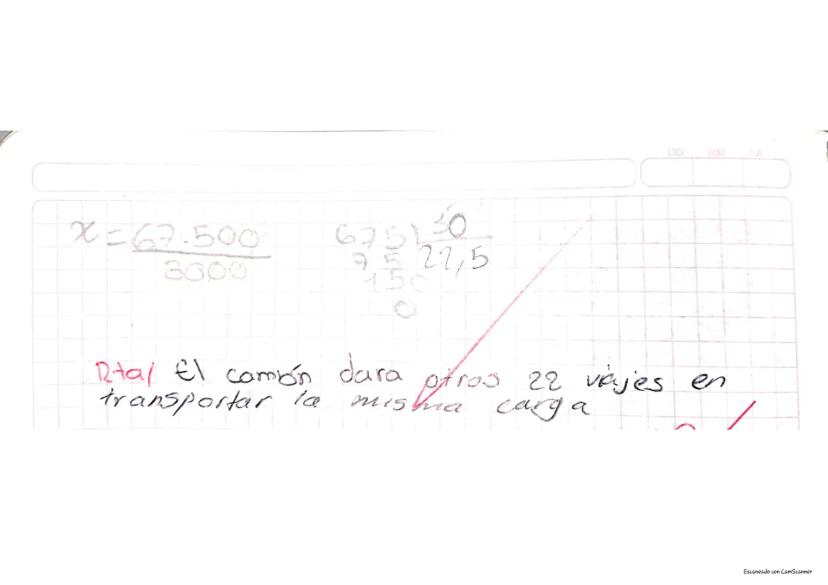 x = 67.500
3000
675 30
75 22,5
150
0
Rta/ El camión dara otros 22 viajes en
transportar la misma carga
Escaneado con CamScanner